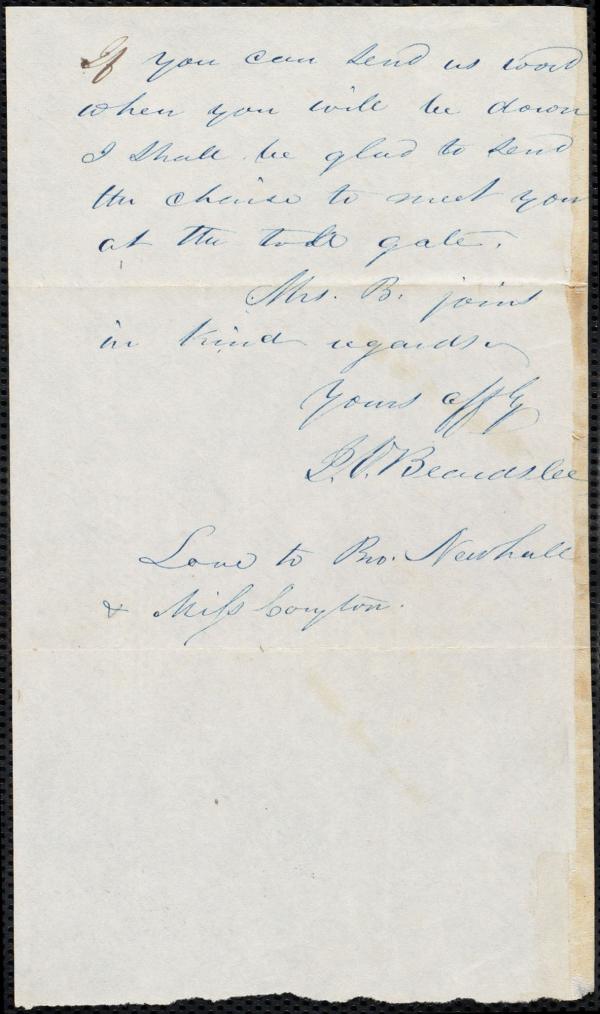 If you can send us word
when you will be down
I shall be glad to send
the chaise to meet you
at the toll gate.
Mrs. B. joins
in kind regards
Yours affly
Beardslee
Love to Bro. Newhall
& Miss